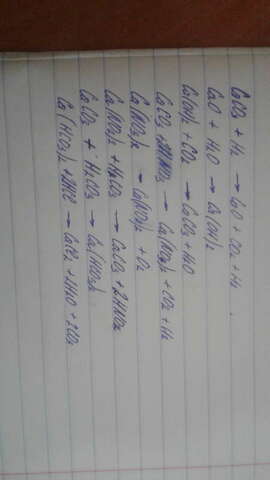 CaCO3 + H2 → CaO + CO2 + H2
CaO + H2O → Ca(OH)2
Ca(OH)2 + CO2 → CaCO3 + H2O
CaCO3 + 2HNO3 → Ca(NO3)2 + CO2 + H2
Ca(NO3)2 → Ca(NO2)2 + O2
Ca(NO2)2 + H2CO3 → CaCO3 + 2HNO2
CaCO3 + H2CO3 → Ca(HCO3)2
Ca(HCO3)2 + 2HCl → CaCl2 + 2H2O + 2CO2